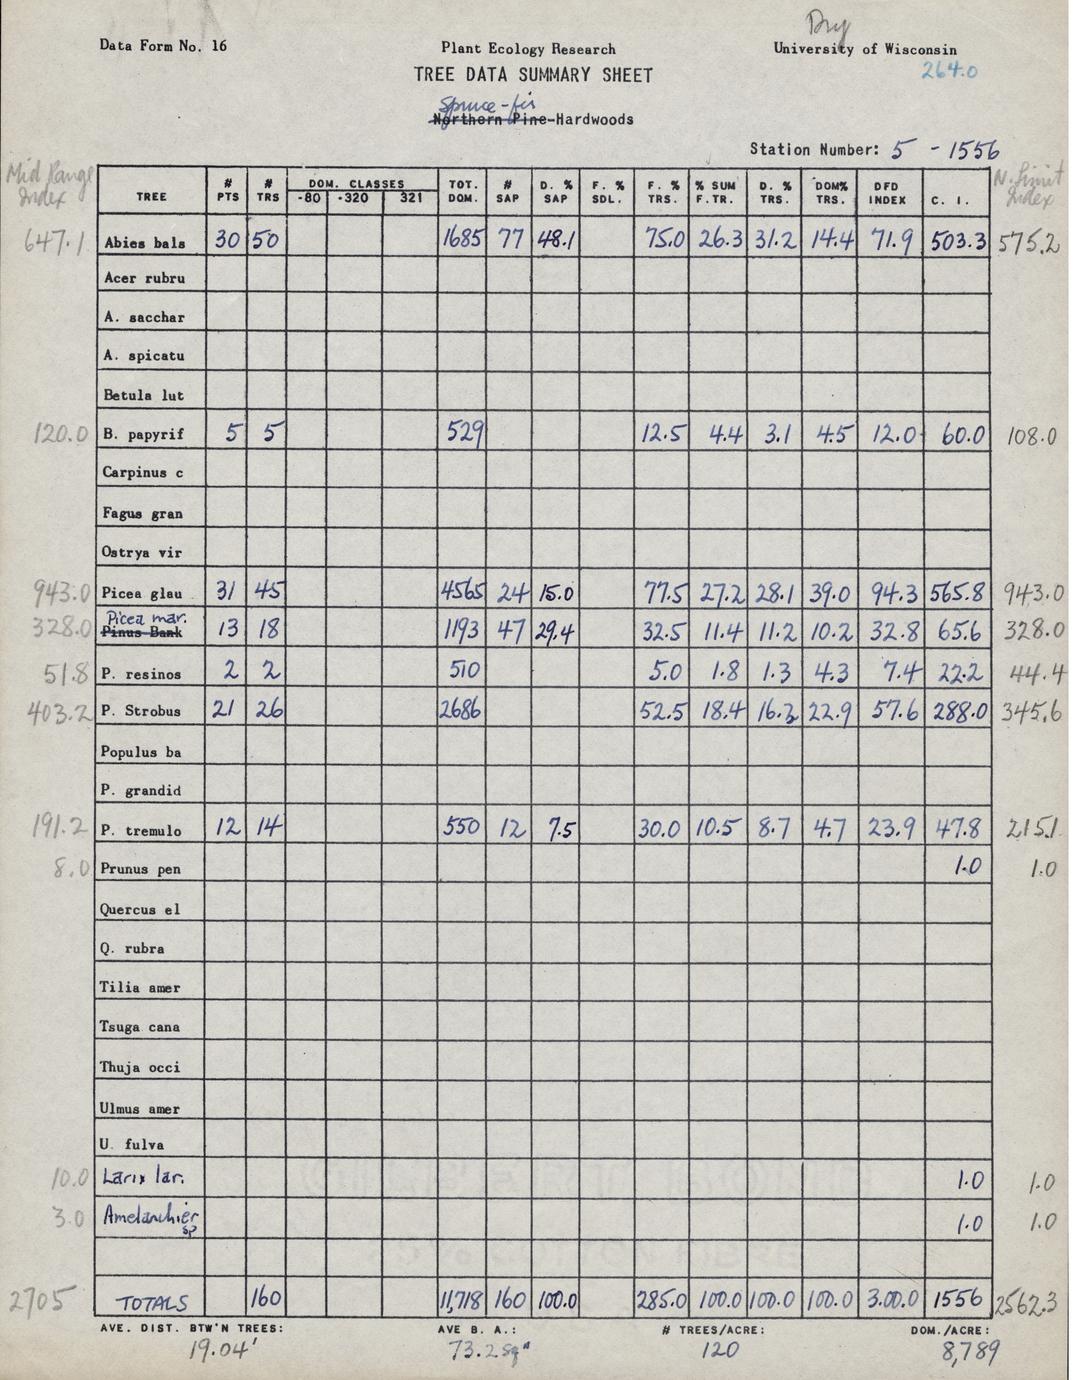 Dry
Data Form No. 16 Plant Ecology Research University of Wisconsin
TREE DATA SUMMARY SHEET 264.0
Spruce-fir
Northern Pine-Hardwoods
Station Number: 5 - 1556
Mid Range Index TREE # PTS # TRS DOM. CLASSES -80 -320 321 TOT. DOM. # SAP D. % SAP F. % SDL. F. % TRS. % SUM F.TR. D. % TRS. DOM% TRS. DFD INDEX C. I. N. Limit Index
647.1 Abies bals 30 50 1685 77 48.1 75.0 26.3 31.2 14.4 71.9 503.3 575.2
Acer rubru
A. sacchar
A. spicatu
Betula lut
120.0 B. papyrif 5 5 529 12.5 4.4 3.1 4.5 12.0 60.0 108.0
Carpinus c
Fagus gran
Ostrya vir
943.0 Picea glau 31 45 4565 24 15.0 77.5 27.2 28.1 39.0 94.3 565.8 943.0
Picea mar.
328.0 Pinus Bank 13 18 1193 47 29.4 32.5 11.4 11.2 10.2 32.8 65.6 328.0
51.8 P. resinos 2 2 510 5.0 1.8 1.3 4.3 7.4 22.2 44.4
403.2 P. Strobus 21 26 2686 52.5 18.4 16.3 22.9 57.6 288.0 345.6
Populus ba
P. grandid
191.2 P. tremulo 12 14 550 12 7.5 30.0 10.5 8.7 4.7 23.9 47.8 215.1
8.0 Prunus pen 1.0 1.0
Quercus el
Q. rubra
Tilia amer
Tsuga cana
Thuja occi
Ulmus amer
U. fulva
10.0 Larix lar. 1.0 1.0
3.0 Amelanchier sp 1.0 1.0
2705 TOTALS 160 11,718 160 100.0 285.0 100.0 100.0 100.0 300.0 1556 2562.3
AVE. DIST. BTW'N TREES: AVE B. A.: # TREES/ACRE: DOM./ACRE:
19.04' 73.2 sq" 120 8,789